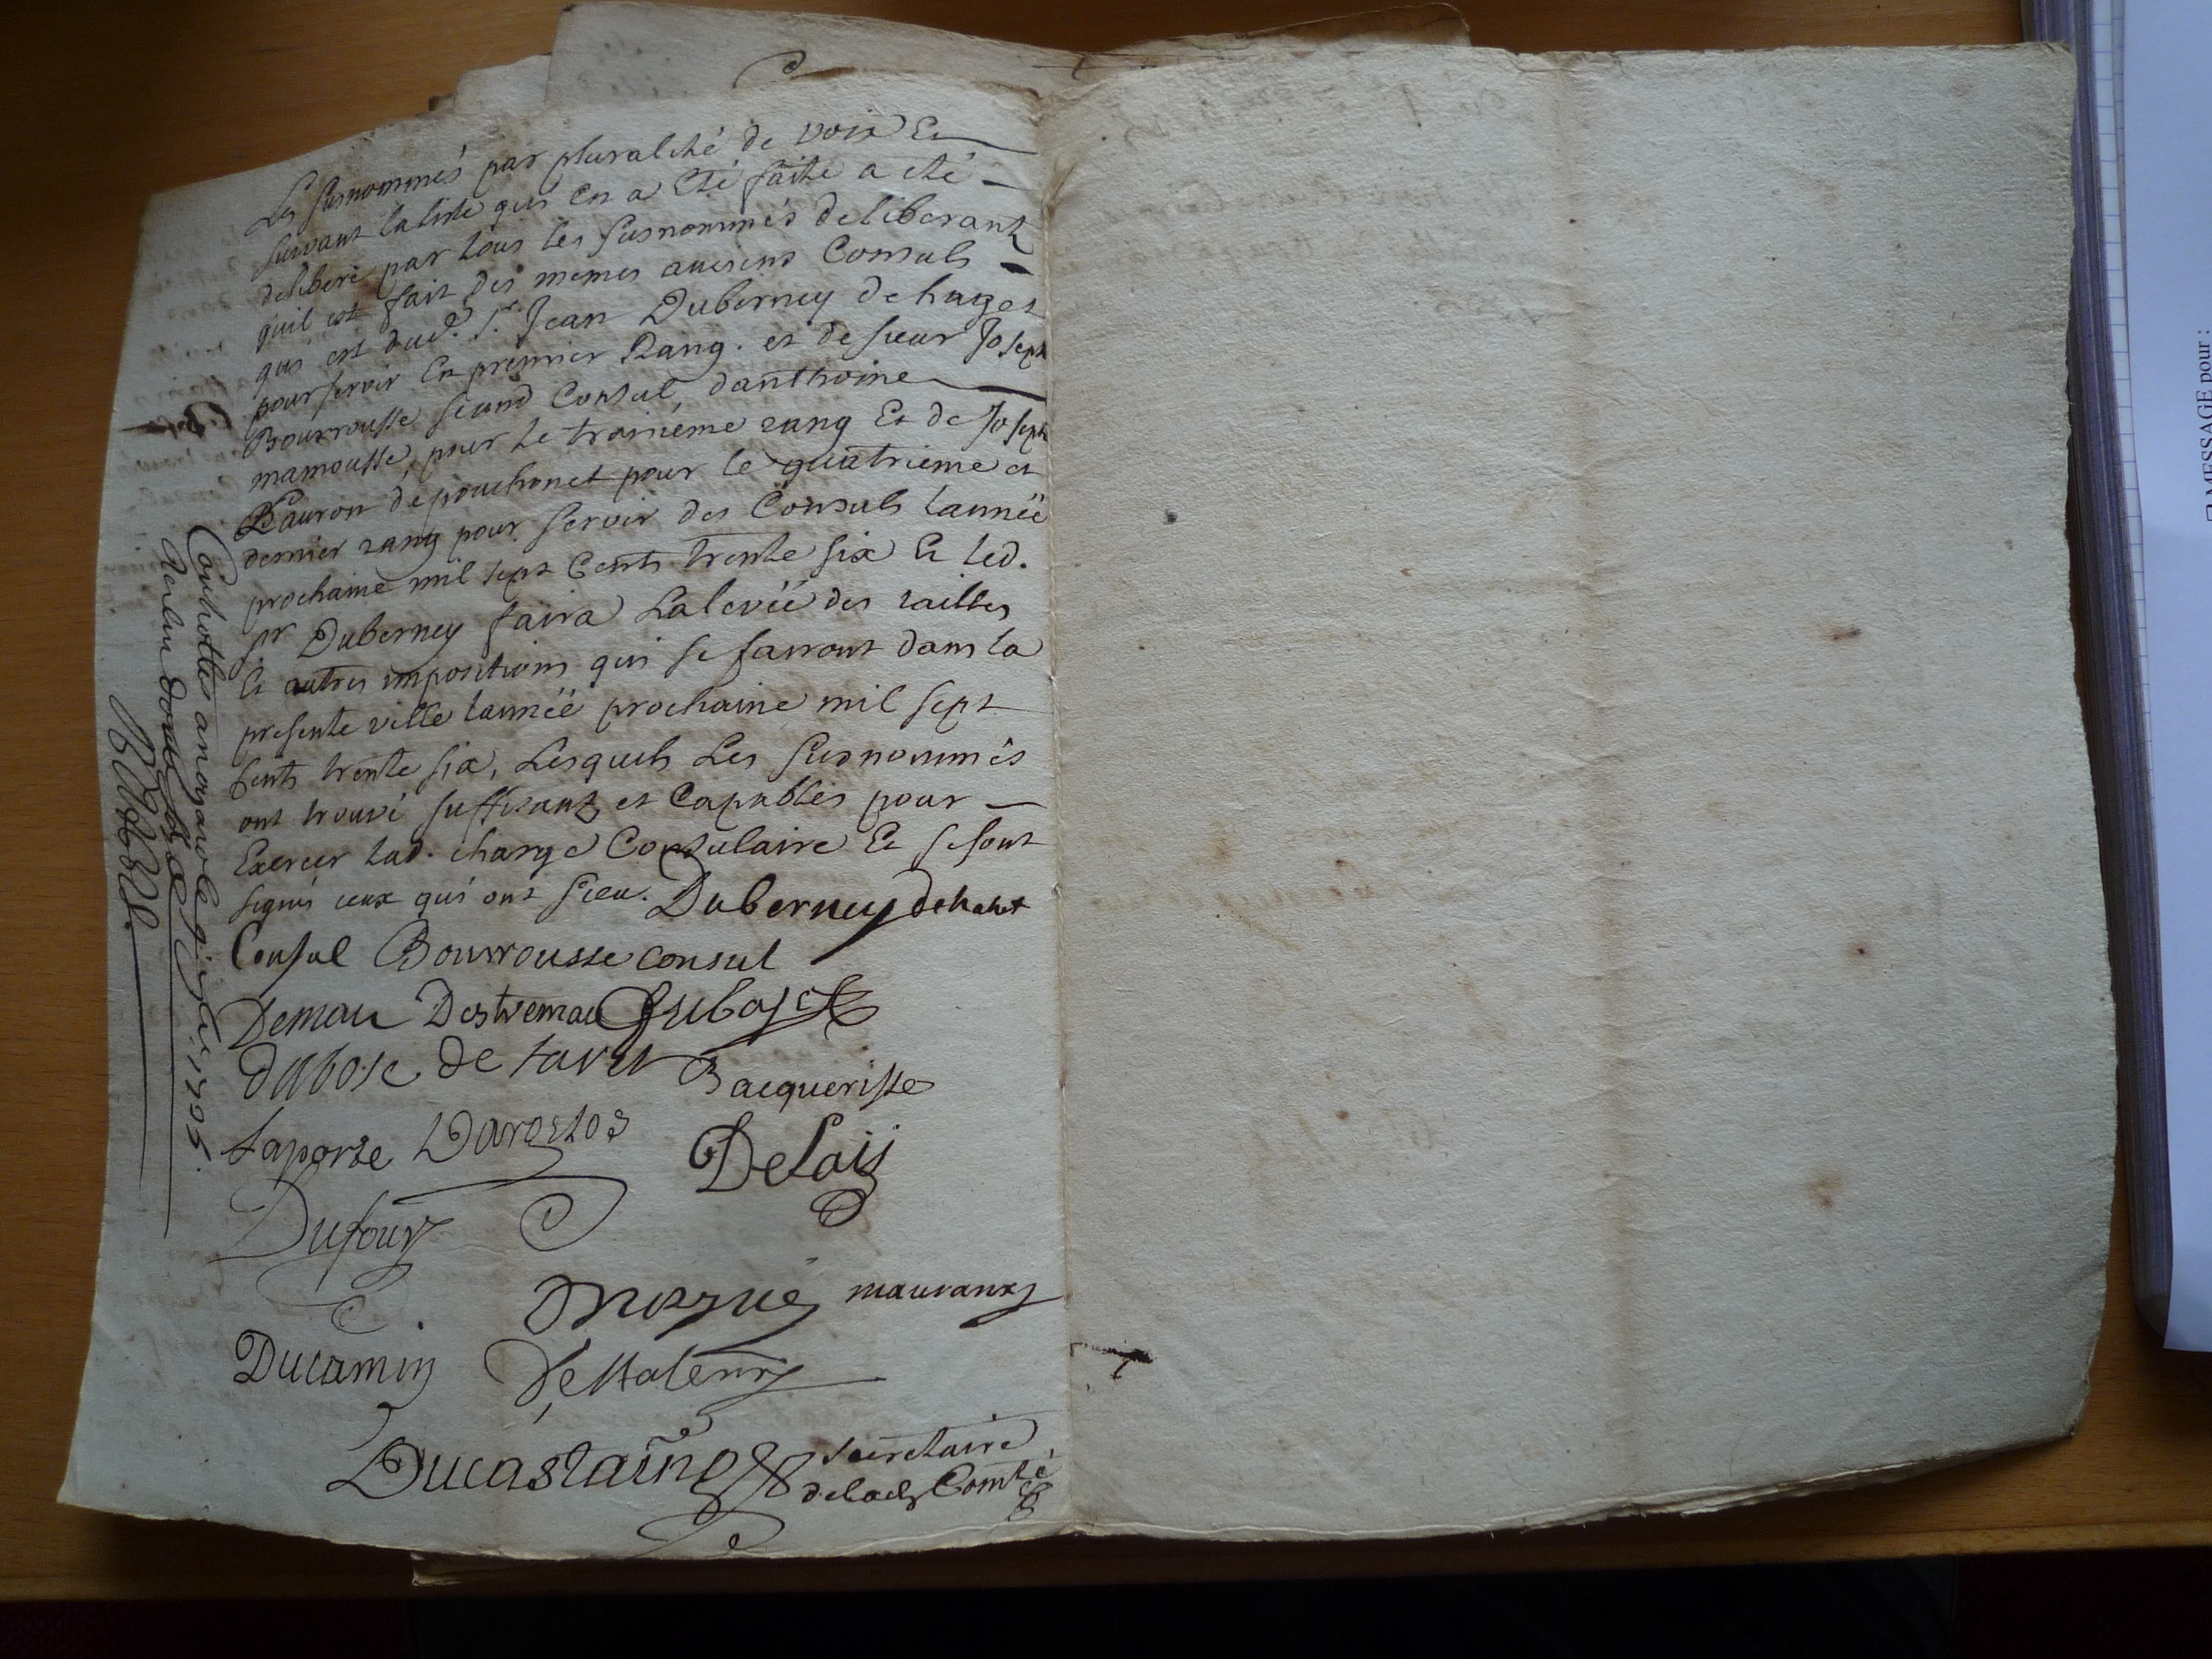 Les susnommés par pluralité de voix Et
suivant la liste qui en a Eté faite a eté
deliberé par tous les susnommés deliberant
quil est fait des memes anciens Consuls
qui est dud. Sr. Jean Duberney de hazes
pour servir En premier Rang. et de sieur Joseph
Bourrousse second Consul, danthoine
mamousse, pour le troisieme rang Et de Joseph
Lauron de pouchonet pour le quatrieme et
dernier rang pour servir des Consuls lannéë
prochaine mil sept Cents trente six Et led.
sr Duberney faira La levéë des tailles
Et autres impositions qui se fairont dans la
presente ville lannéë prochaine mil sept
Cents trente six, Lesquels Les susnommés
ont trouvé suffisantz et Capables pour
Exercer lad. charge Consulaire Et se sont
signés ceux qui ont sceu. Duberney
Consul Bourrousse consul
Deman Destremau Dubosc
dubosc de
Bacquerisse
Laporte
Delaij
Dufour
mauvanx
Ducamin
Ducastaing secretaire
de lad. Comté
Controllé
1735.
MESSAGE pour :